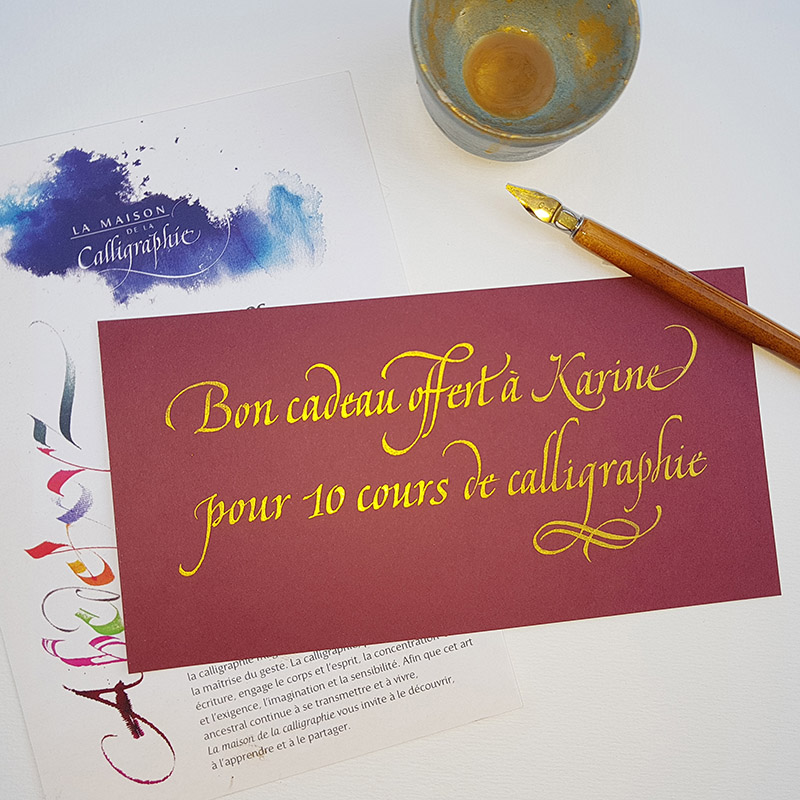 LA MAISON
DE LA
Calligraphie
Bon cadeau offert à Karine
pour 10 cours de calligraphie
la calligraphie
la maîtrise du geste. La calligraphie,
écriture, engage le corps et l'esprit, la concentration
et l'exigence, l'imagination et la sensibilité. Afin que cet art
ancestral continue à se transmettre et à vivre,
La maison de la calligraphie vous invite à le découvrir,
à l'apprendre et à le partager.